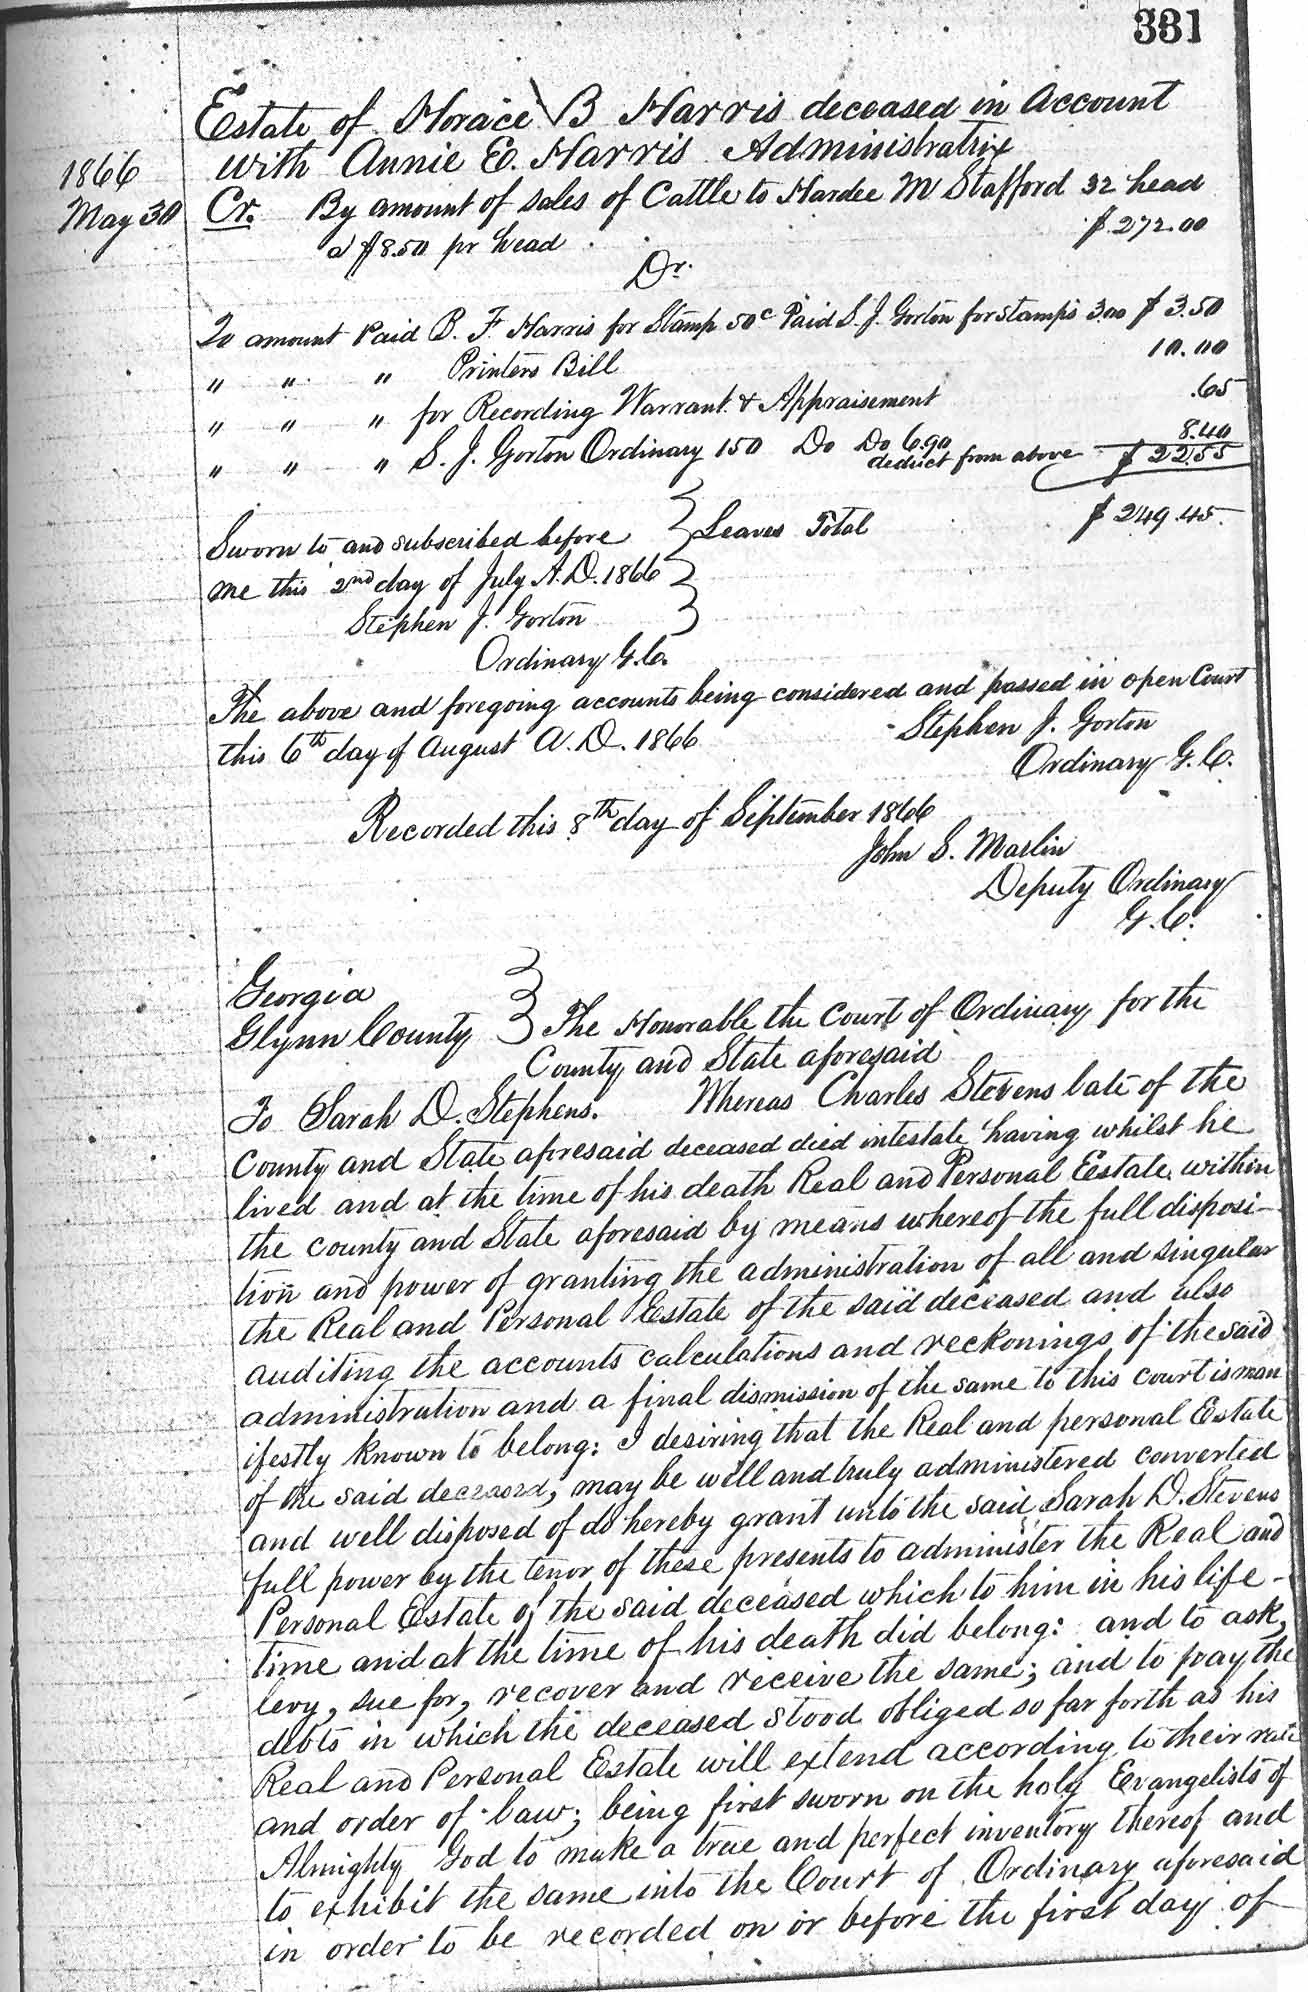 331
Estate of Horace B Harris deceased in Account
1866 with Annie E. Harris Administratrix
May 30 Cr. By amount of sales of Cattle to Hardee M Stafford 32 head
a $8.50 pr head $272.00
Dr.
To amount Paid B. F. Harris for Stamp 50c Paid S. J. Gorton for stamps 3.00 $3.50
" " " Printers Bill 10.00
" " " for Recording Warrant & Appraisement .65
" " " S. J. Gorton Ordinary 150 Do Do 6.90 8.40
deduct from above $22.55
Leaves Total $249.45
Sworn to and subscribed before
me this 2nd day of July A.D. 1866
Stephen J. Gorton
Ordinary G.C.
The above and foregoing accounts being considered and passed in open Court
this 6th day of August A.D. 1866
Stephen J. Gorton
Ordinary G.C.
Recorded this 8th day of September 1866
John S. Maslin
Deputy Ordinary
G.C.
Georgia
Glynn County The Honorable the Court of Ordinary for the
County and State aforesaid
To Sarah D. Stephens. Whereas Charles Stevens late of the
County and State aforesaid deceased died intestate having whilst he
lived and at the time of his death Real and Personal Estate within
the county and State aforesaid by means whereof the full disposi-
tion and power of granting the administration of all and singular
the Real and Personal Estate of the said deceased and also
auditing the accounts calculations and reckonings of the said
administration and a final dismission of the same to this court is man
ifestly known to belong: I desiring that the Real and personal Estate
of the said deceased, may be well and truly administered converted
and well disposed of do hereby grant unto the said Sarah D. Stevens
full power by the tenor of these presents to administer the Real and
Personal Estate of the said deceased which to him in his life-
time and at the time of his death did belong: and to ask,
levy, sue for, recover and receive the same; and to pay the
debts in which the deceased stood obliged so far forth as his
Real and Personal Estate will extend according to their rate
and order of law; being first sworn on the holy Evangelists of
Almighty God to make a true and perfect inventory thereof and
to exhibit the same into the Court of Ordinary aforesaid
in order to be recorded on or before the first day of